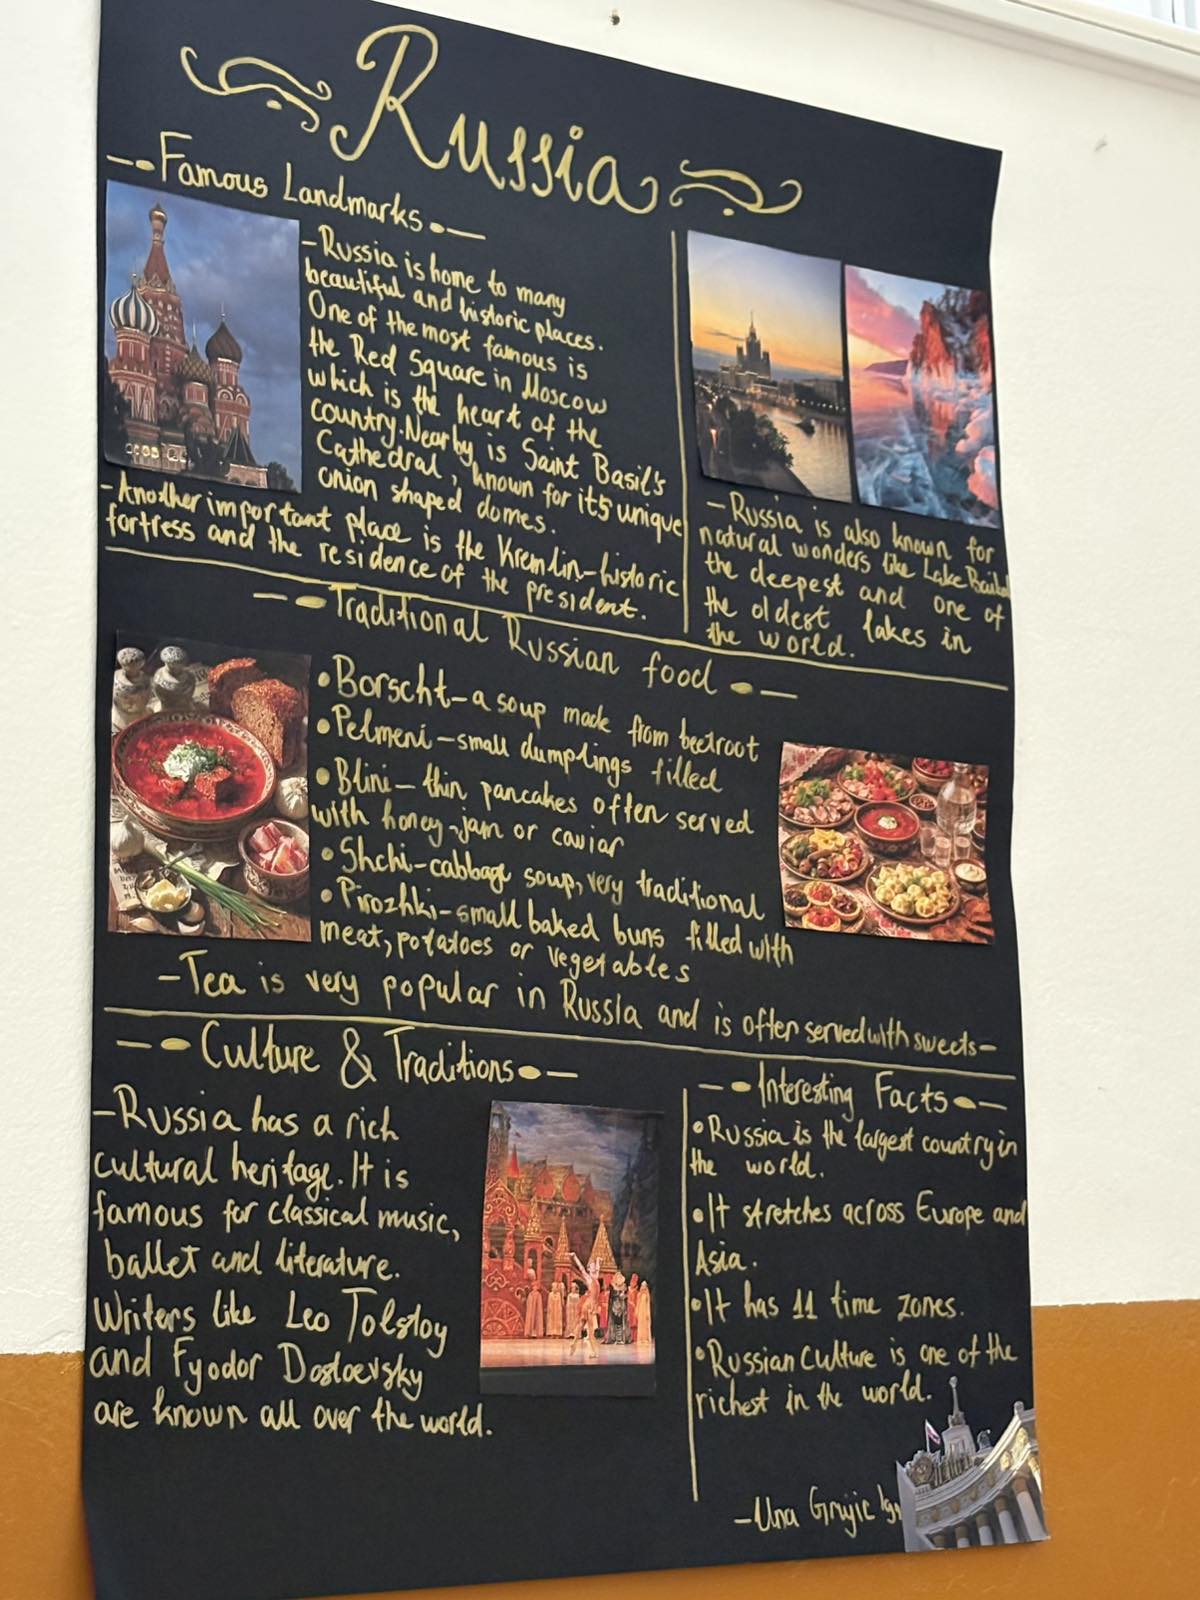 Russia
Famous Landmarks
-Russia is home to many
beautiful and historic places.
One of the most famous is
the Red Square in Moscow
which is the heart of the
country. Nearby is Saint Basil's
Cathedral, known for it5 unique
onion shaped domes.
-Another important place is the Kremlin-historic
fortress and the residence of the president.
-Russia is also known for
natural wonders like Lake Baikal
the deepest and one of
the oldest lakes in
the world.
Traditional Russian food
•Borscht-a soup made from beetroot
•Pelmeni-small dumplings filled
•Blini-thin pancakes often served
with honey-jam or caviar
•Shchi-cabbage soup, very traditional
•Pirozhki-small baked buns filled with
meat, potatoes or vegetables
-Tea is very popular in Russia and is often served with sweets-
Culture & Traditions
-Russia has a rich
cultural heritage. It is
famous for classical music,
ballet and literature.
Writers like Leo Tolstoy
and Fyodor Dostoevsky
are known all over the world.
Interesting Facts
•Russia is the largest country in
the world.
•It stretches across Europe and
Asia.
•It has 11 time zones.
•Russian Culture is one of the
richest in the world.
-Una Grujic